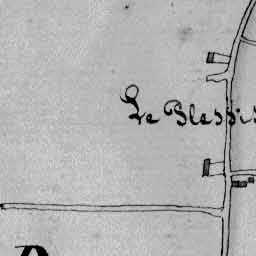 Le Blessis